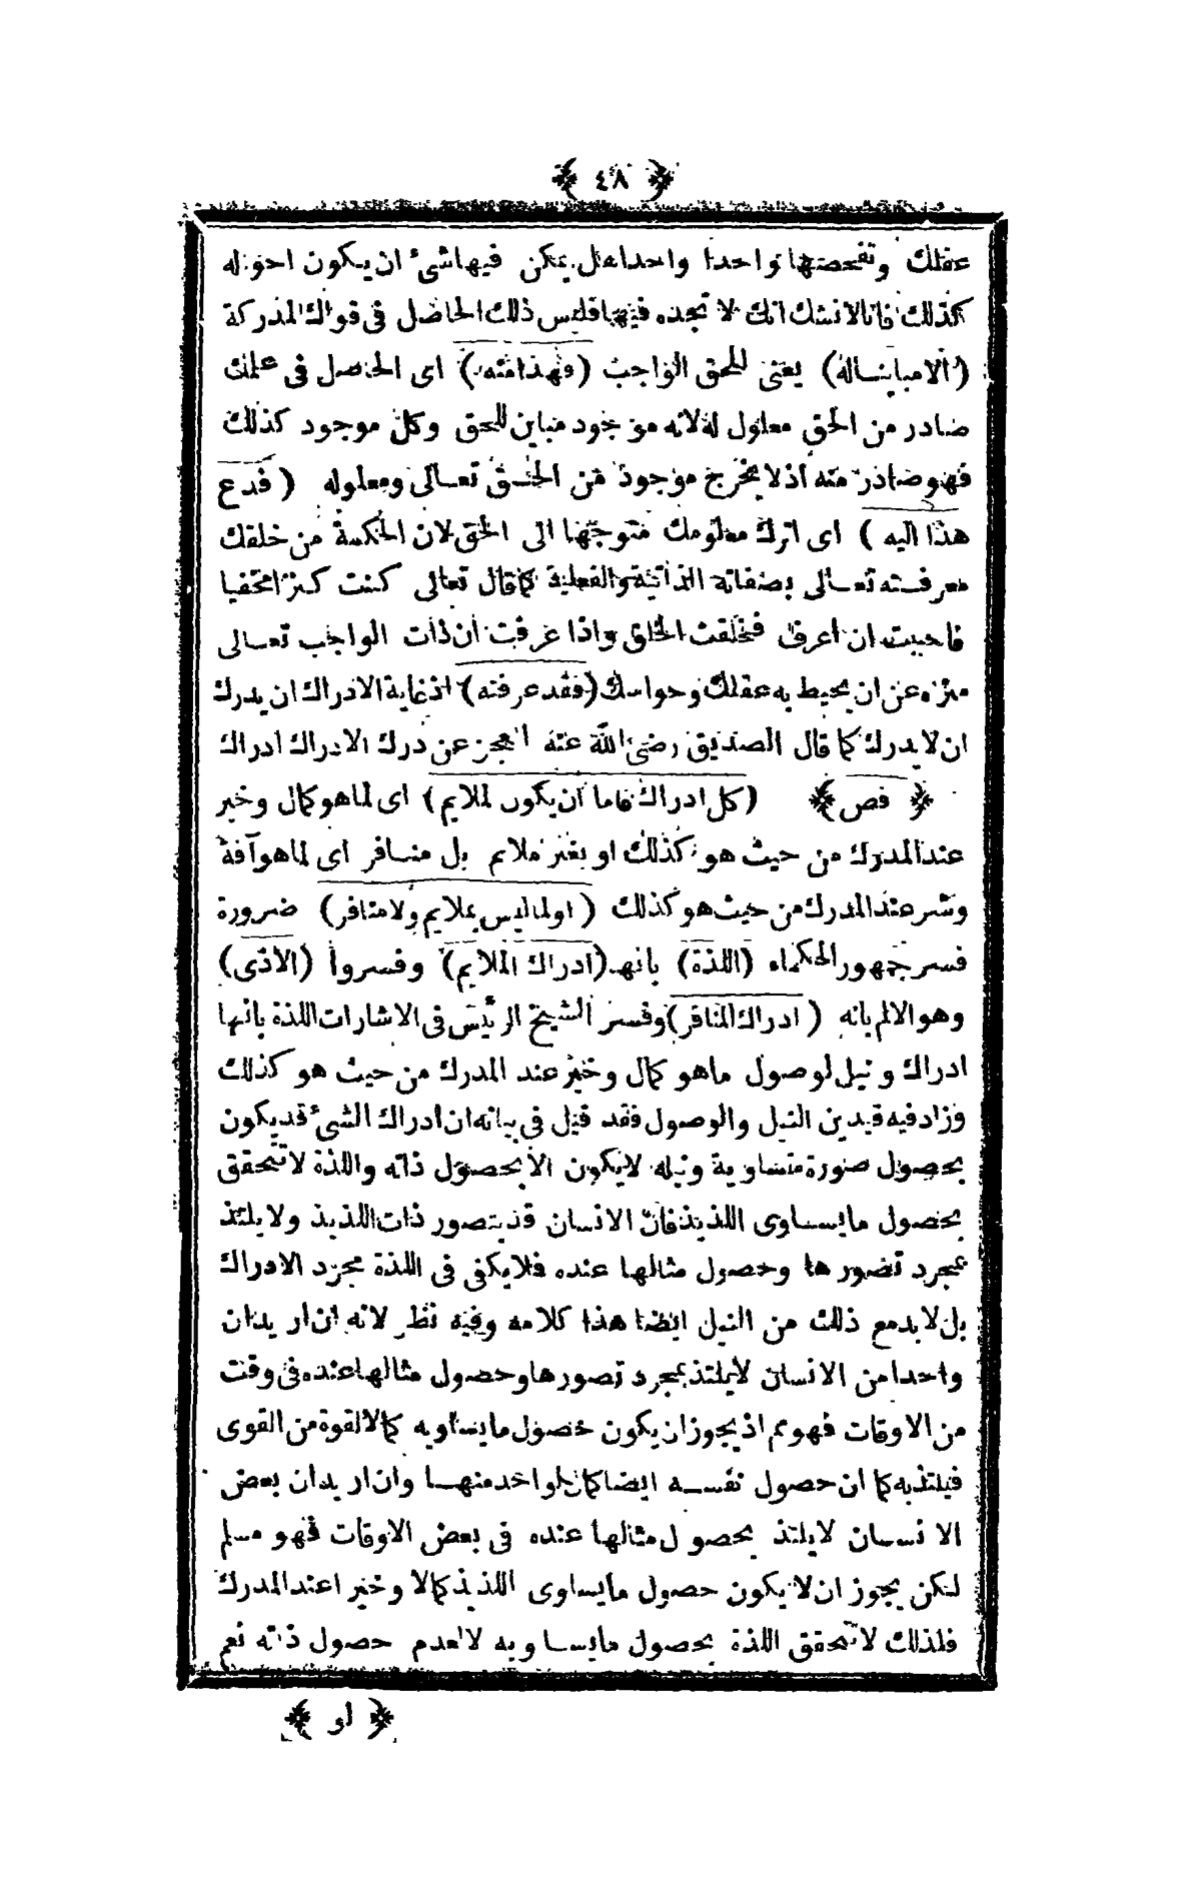 ﴿ ٤٨ ﴾
عقلك وتفحصتها واحدا واحدا هل يمكن فيها شئ ان يكون احواله
كذلك فانا لانشك انك لا تجده فيها فليس ذلك الحاصل فى قواك المدركة
(الامباينا له) يعنى للحق الواجب (وهذا منه) اى الحاصل فى علمك
صادر من الحق معلول له لانه موجود مباين للحق وكل موجود كذلك
فهو صادر منه اذ لا يخرج موجود من الحق تعالى ومعلوله (فدع
هذا اليه) اى اترك معلومك متوجها الى الحق لان الحكمة من خلقك
معرفته تعالى بصفاته الذاتية والفعلية كما قال تعالى كنت كنزا مخفيا
فاحببت ان اعرف فخلقت الخلق واذا عرفت ان ذات الواجب تعالى
منزه عن ان يحيط به عقلك وحواسك (فقد عرفته) اذ غاية الادراك ان يدرك
ان لا يدرك كما قال الصديق رضى الله عنه العجز عن درك الادراك ادراك
﴿ فص ﴾ (كل ادراك فاما ان يكون لملايم) اى لما هو كمال وخير
عند المدرك من حيث هو كذلك او بغير ملايم بل منافر اى لما هو آفة
وشر عند المدرك من حيث هو كذلك (او لما ليس بملايم ولا منافر) ضرورة
فسر جمهور الحكماء (اللذة) بانها (ادراك الملايم) وفسروا (الاذى)
وهو الالم بانه (ادراك المنافر) وفسر الشيخ الرئيس فى الاشارات اللذة بانها
ادراك ونيل لوصول ما هو كمال وخير عند المدرك من حيث هو كذلك
وزاد فيه قيدين النيل والوصول فقد قيل فى بيانه ان ادراك الشئ قد يكون
بحصول صورة متساوية ونيله لا يكون الا بحصول ذاته واللذة لا تتحقق
بحصول ما يساوى اللذيذ فان الانسان قد يتصور ذات اللذيذ ولا يلتذ
بمجرد تصورها وحصول مثالها عنده فلا يكفى فى اللذة مجرد الادراك
بل لا بد مع ذلك من النيل ايضا هذا كلامه وفيه نظر لانه ان اريد ان
واحدا من الانسان لا يلتذ بمجرد تصورها وحصول مثالها عنده فى وقت
من الاوقات فهو مم اذ يجوز ان يكون حصول ما يساويه كمالا لقوة من القوى
فيلتذ به كما ان حصول نفسه ايضا كمال لواحد منها وان اريد ان بعض
الانسان لا يلتذ بحصول مثالها عنده فى بعض الاوقات فهو مسلم
لكن يجوز ان لا يكون حصول ما يساوى اللذيذ كمالا وخيرا عند المدرك
فلذلك لا تتحقق اللذة بحصول ما يساويه لا لعدم حصول ذاته نعم
﴿ لو ﴾